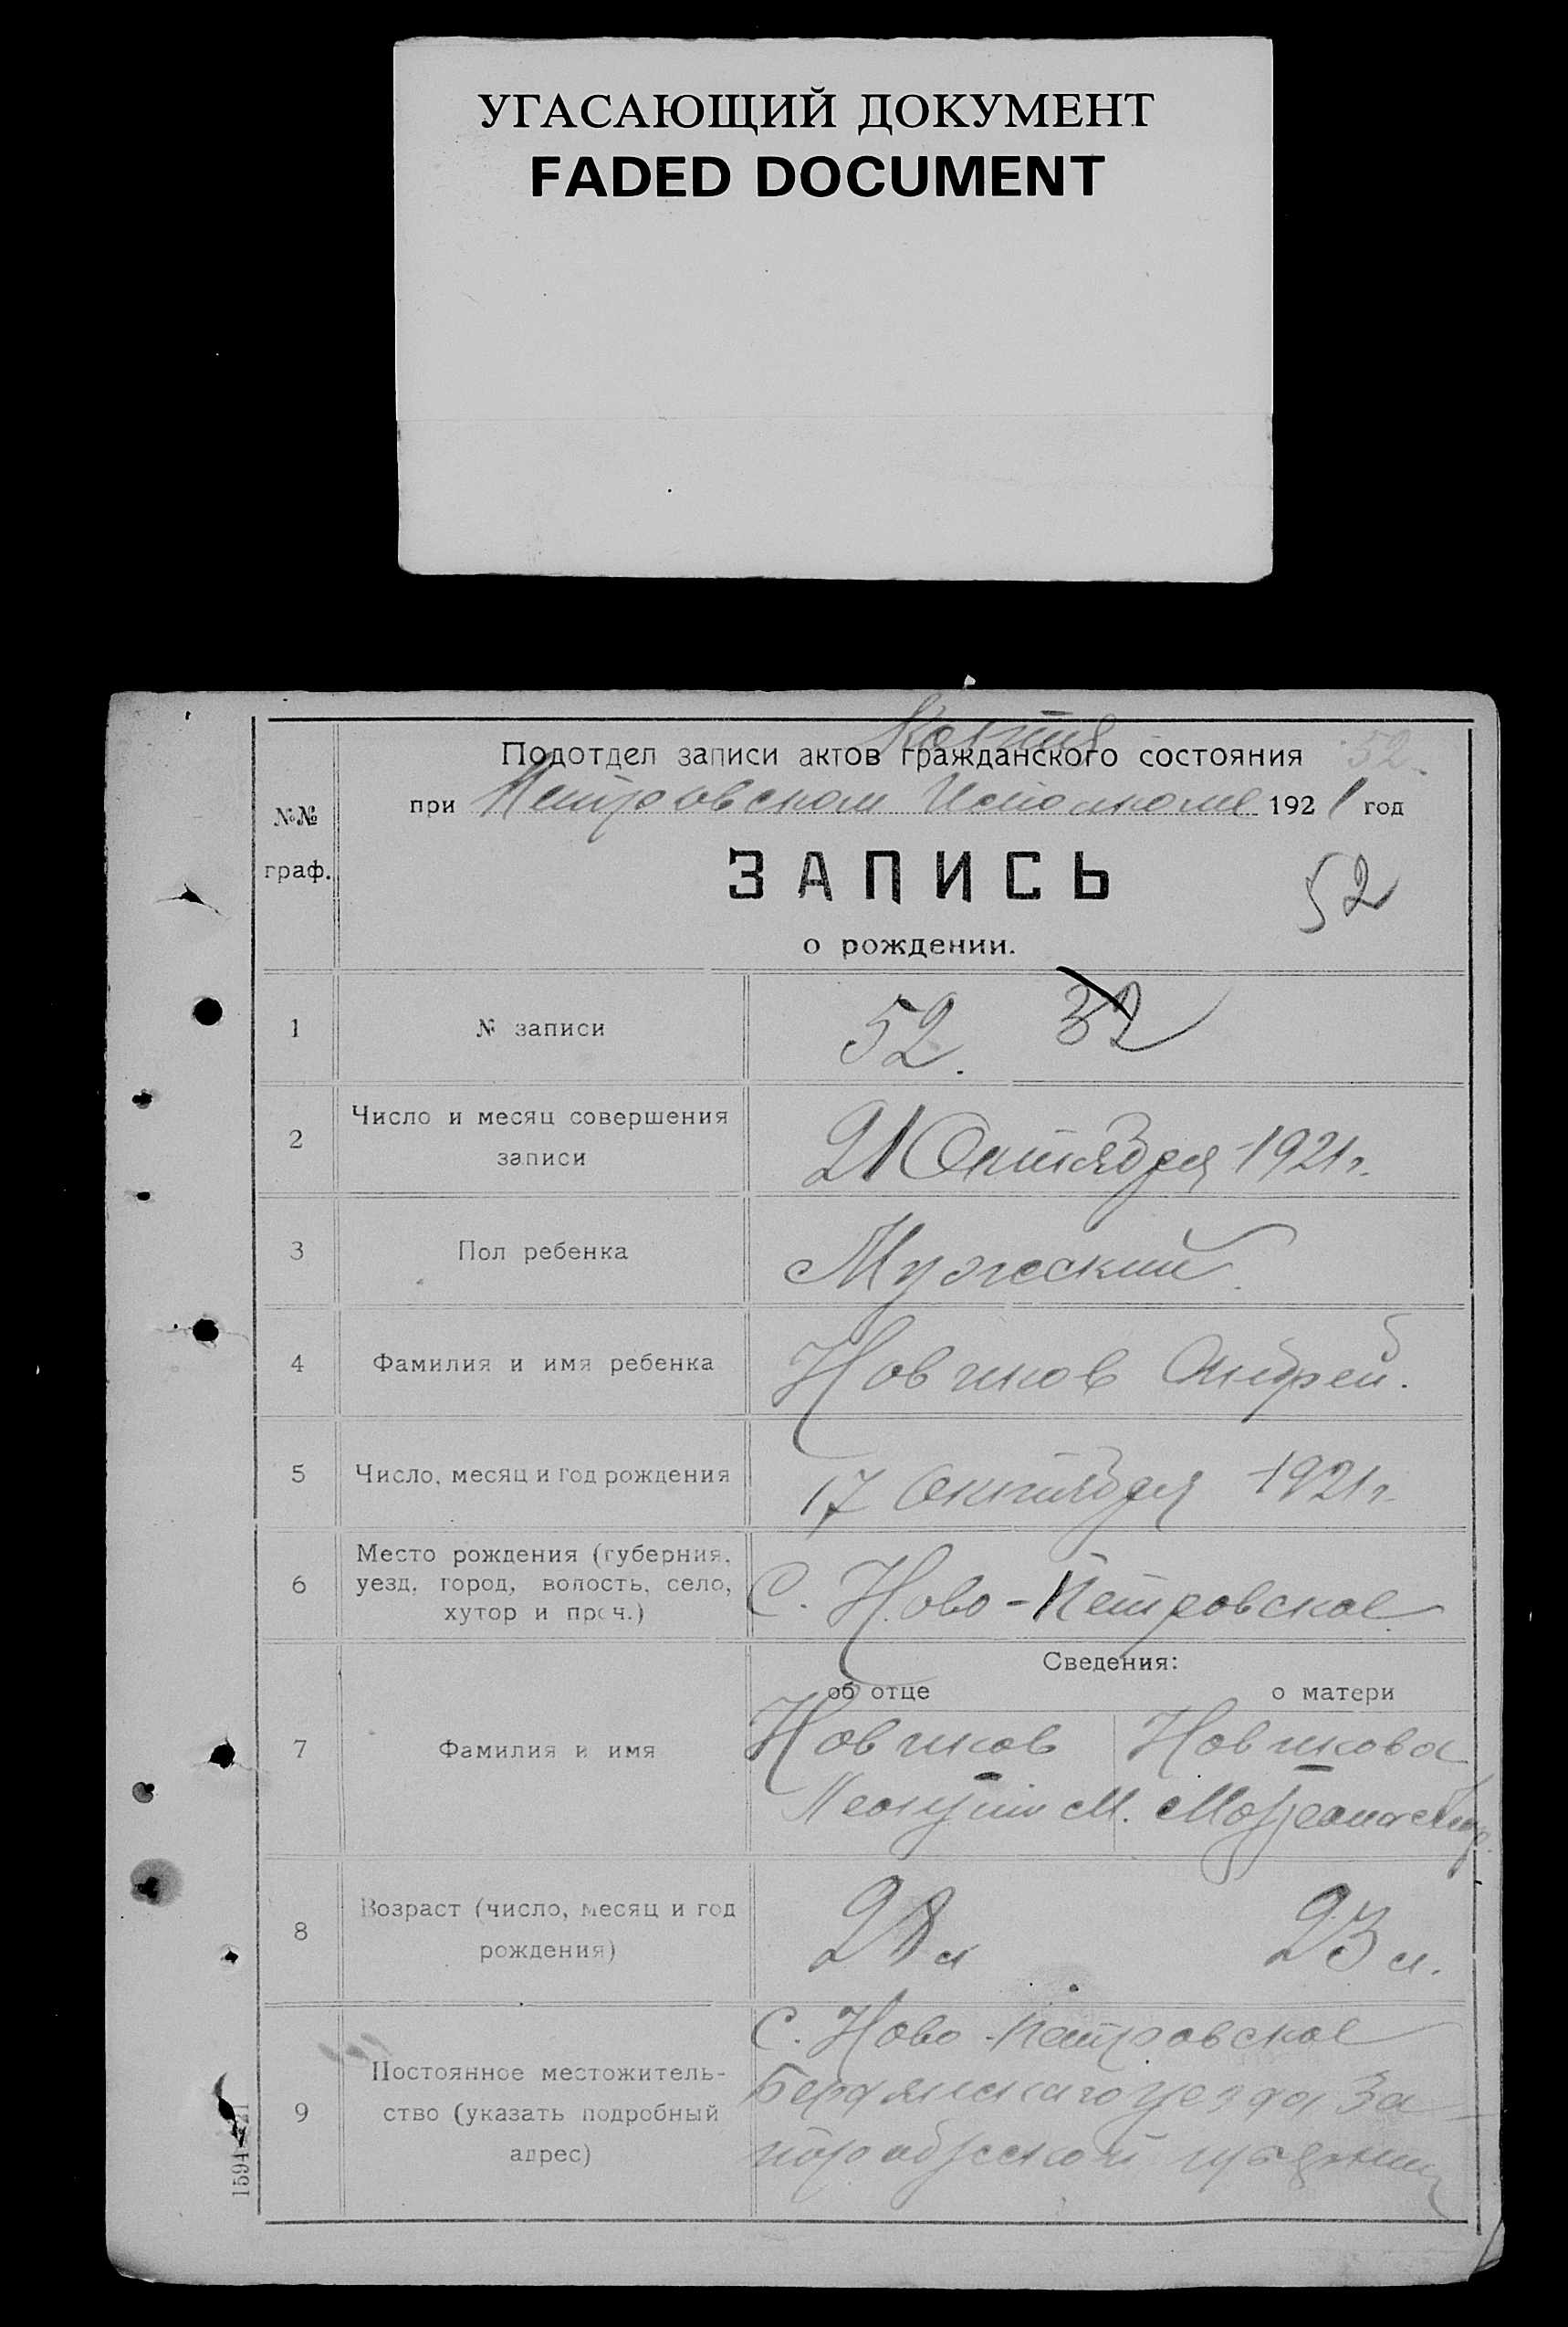 УГАСАЮЩИЙ ДОКУМЕНТ
FADED DOCUMENT
Копия
Подотдел записи актов гражданского состояния 52.
при Петровском Исполкоме 1921 год
№№
граф.
ЗАПИСЬ
52
о рождении.
1 № записи 52. 32
2 Число и месяц совершения
записи
21 Октября 1921 г.
3 Пол ребенка Мужеский
4 Фамилия и имя ребенка Новиков Андрей.
5 Число, месяц и год рождения 17 Октября 1921 г.
6 Место рождения (губерния,
уезд, город, волость, село,
хутор и проч.)
С. Ново-Петровское
Сведения:
об отце о матери
7 Фамилия и имя
Новиков Новикова
М.
8 Возраст (число, месяц и год
рождения)
28 л 23 л.
9 Постоянное местожитель-
ство (указать подробный
адрес)
С. Ново-Петровское
Бердянского уезда За
порожской губернии
1594—21